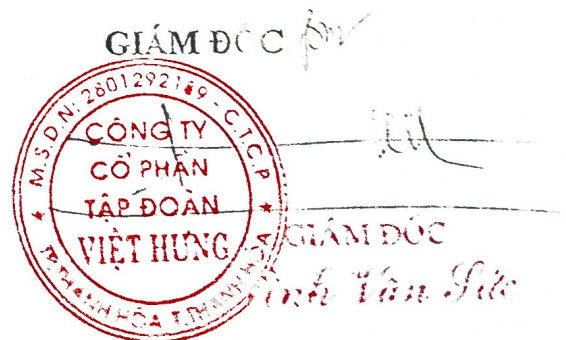 GIÁM ĐỐC
M.S.D.N: 2801292169 - C.T.C.P
CÔNG TY
CỔ PHẦN
TẬP ĐOÀN
VIỆT HƯNG
TP. THANH HÓA T. THANH HÓA
GIÁM ĐỐC
Văn